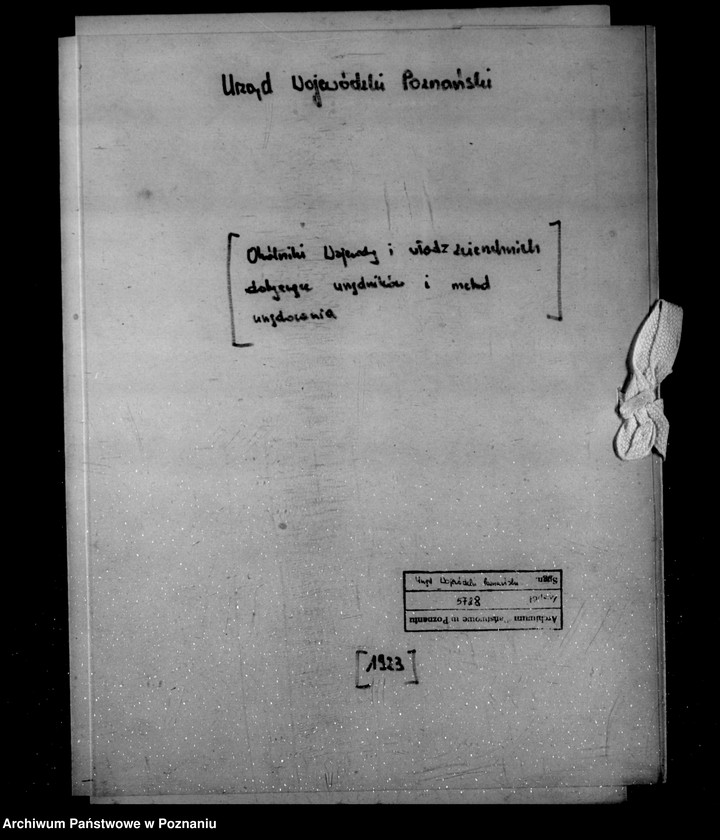 Urząd Wojewódzki Poznański
[Okólniki Wojewody i władz zwierzchnich
dotyczące urzędników i metod
urzędowania]
Urząd Wojewódzki Poznański Sygn.
5738 Zespół
Archiwum Państwowe w Poznaniu
[1923]
Archiwum Państwowe w Poznaniu